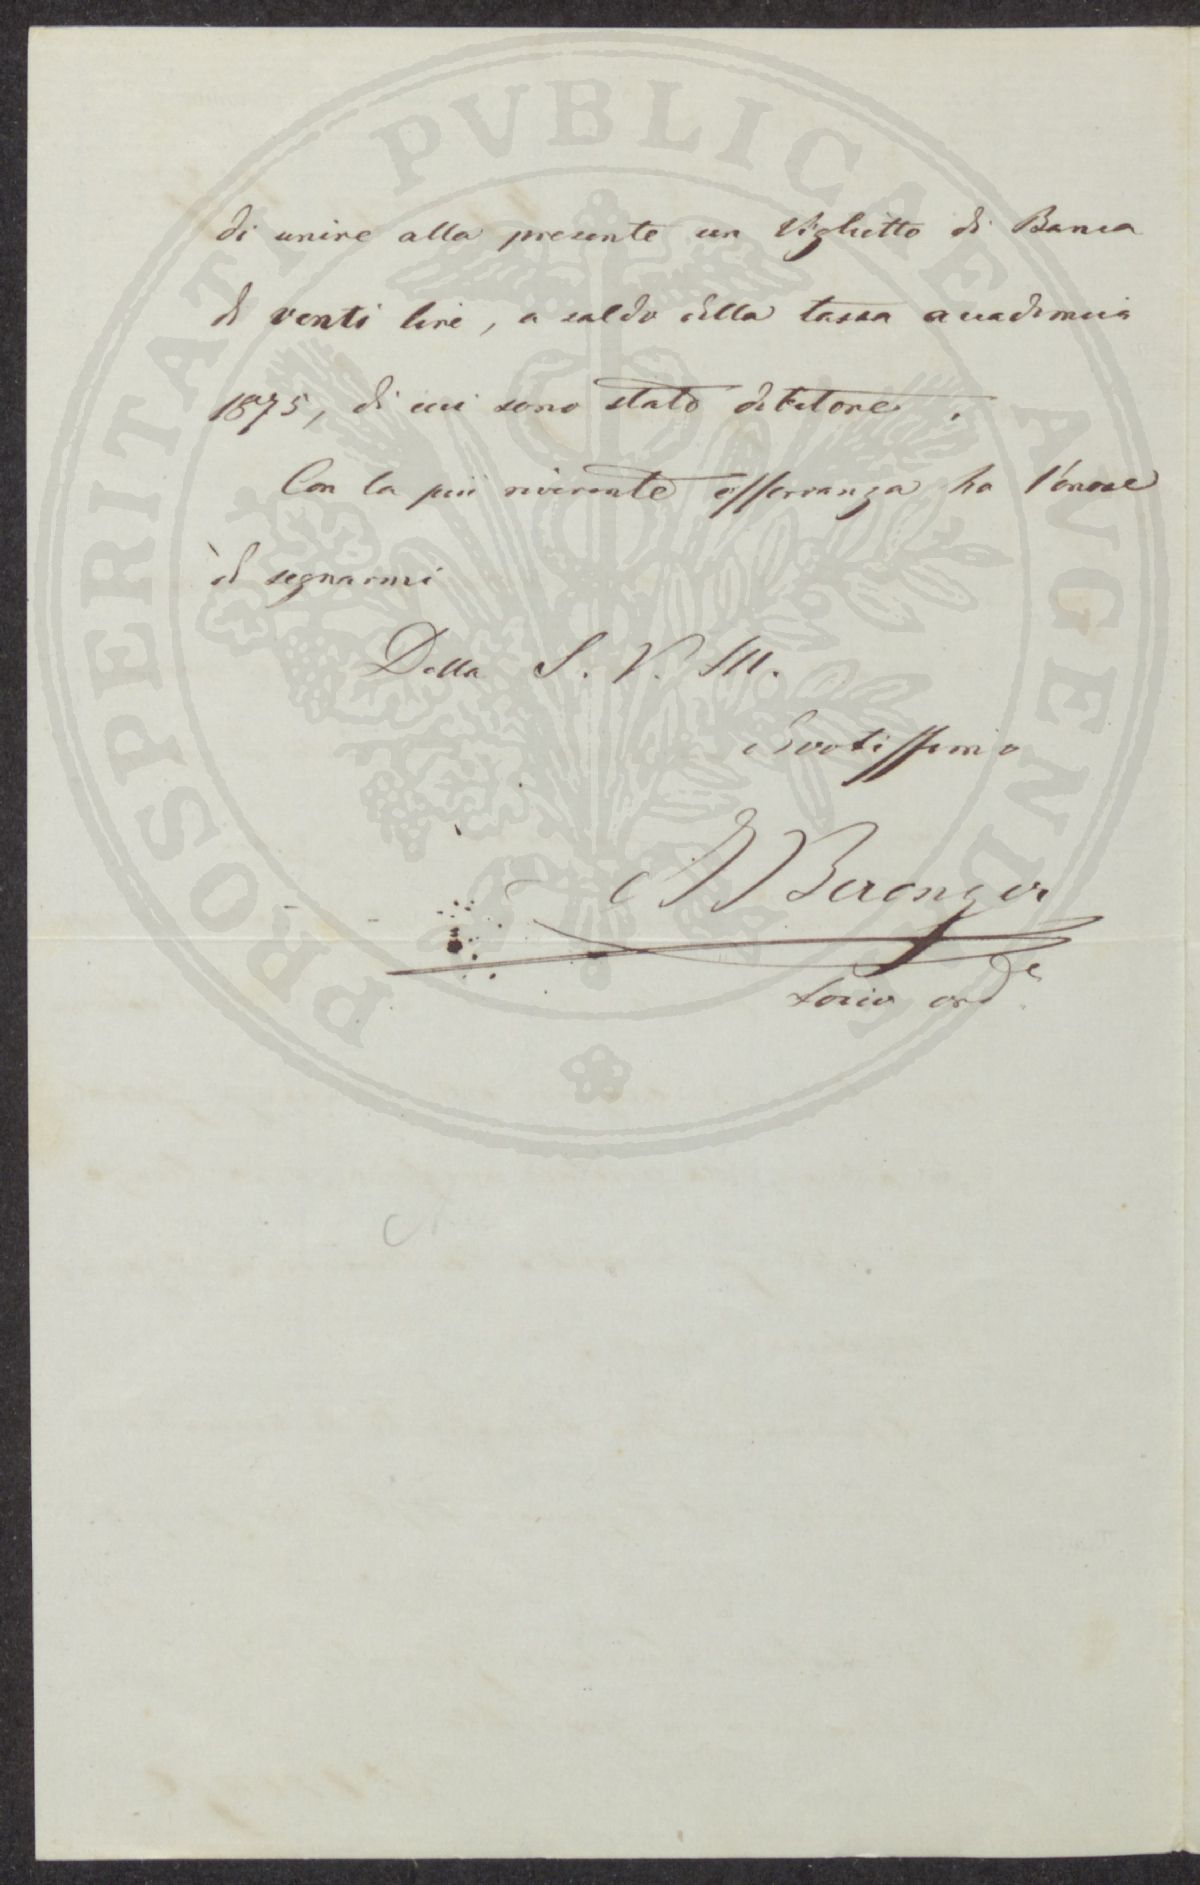 di unire alla presente un Viglietto di Banca
di venti lire, a saldo della tassa accademica
1875, di cui sono stato debitore.
Con la più riverente osservanza ho l'onore
di segnarmi
Della S. V. Ill.
devotissimo
A Berenger
Socio ord.e
PROSPERITATI PVBLICAE AVGENDAE